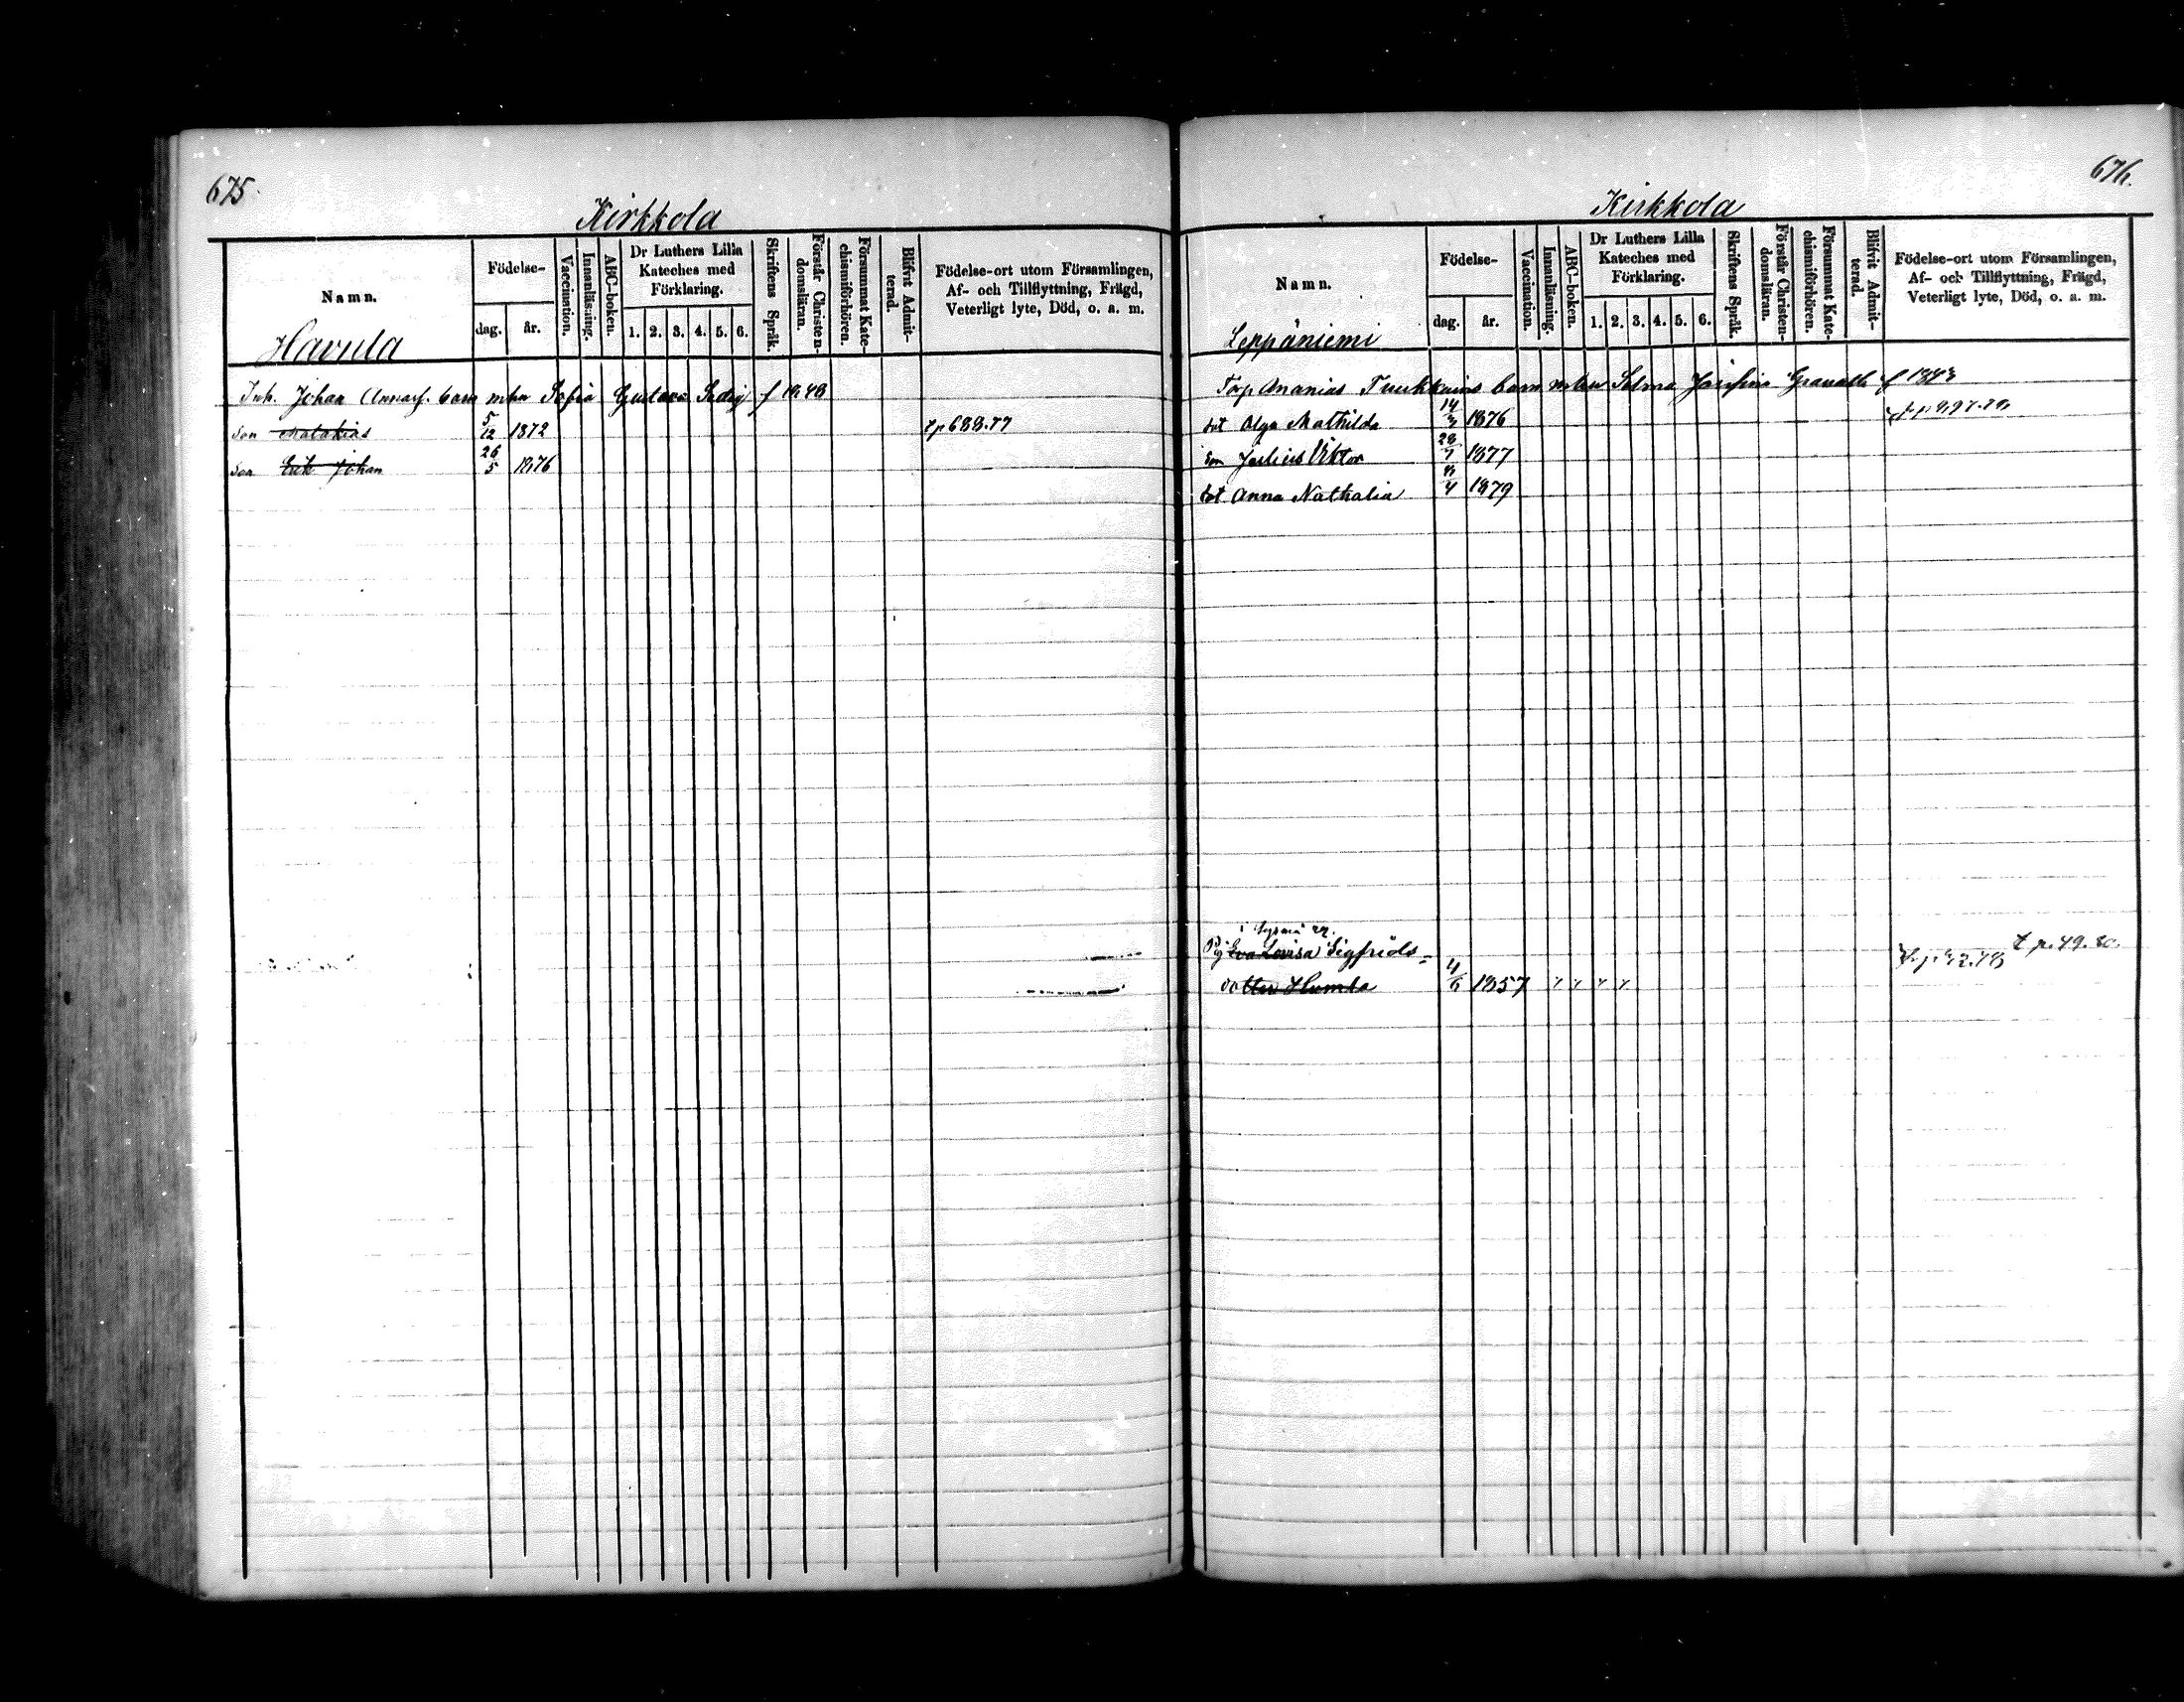 675.
Kirkkola
Namn.
Födelse-
dag.
år.
Vaccination.
Innanläsning.
ABC-boken.
Dr Luthers Lilla
Kateches med
Förklaring.
1. 2. 3. 4. 5. 6.
Skriftens Språk.
Förstår Christen-
domsläran.
Försummat Kate-
chismiförhören.
Blifvit Admit-
terad.
Födelse-ort utom Församlingen,
Af- och Tillflyttning, Frägd,
Veterligt lyte, Död, o. a. m.
Havula
Inh. Johan barn mhu Sofia Gustava f 1848
Son Malakias 5/12 1872 t p 688.77
Son Erik Johan 26/5 1876
676.
Kirkkola
Namn.
Födelse-
dag.
år.
Vaccination.
Innanläsning.
ABC-boken.
Dr Luthers Lilla
Kateches med
Förklaring.
1. 2. 3. 4. 5. 6.
Skriftens Språk.
Förstår Christen-
domsläran.
Försummat Kate-
chismiförhören.
Blifvit Admit-
terad.
Födelse-ort utom Församlingen,
Af- och Tillflyttning, Frägd,
Veterligt lyte, Död, o. a. m.
Leppäniemi
Torp Ananias barn mhu Selma Josefina f
dot Olga Mathilda 14/3 1876
Son Julius Viktor 28/7 1877
dot Anna Nathalia 8/4 1879
i Sysmä
Pig Eva Lovisa Sigfrids- t p. 49. 80.
dotter Humla 4/6 1857